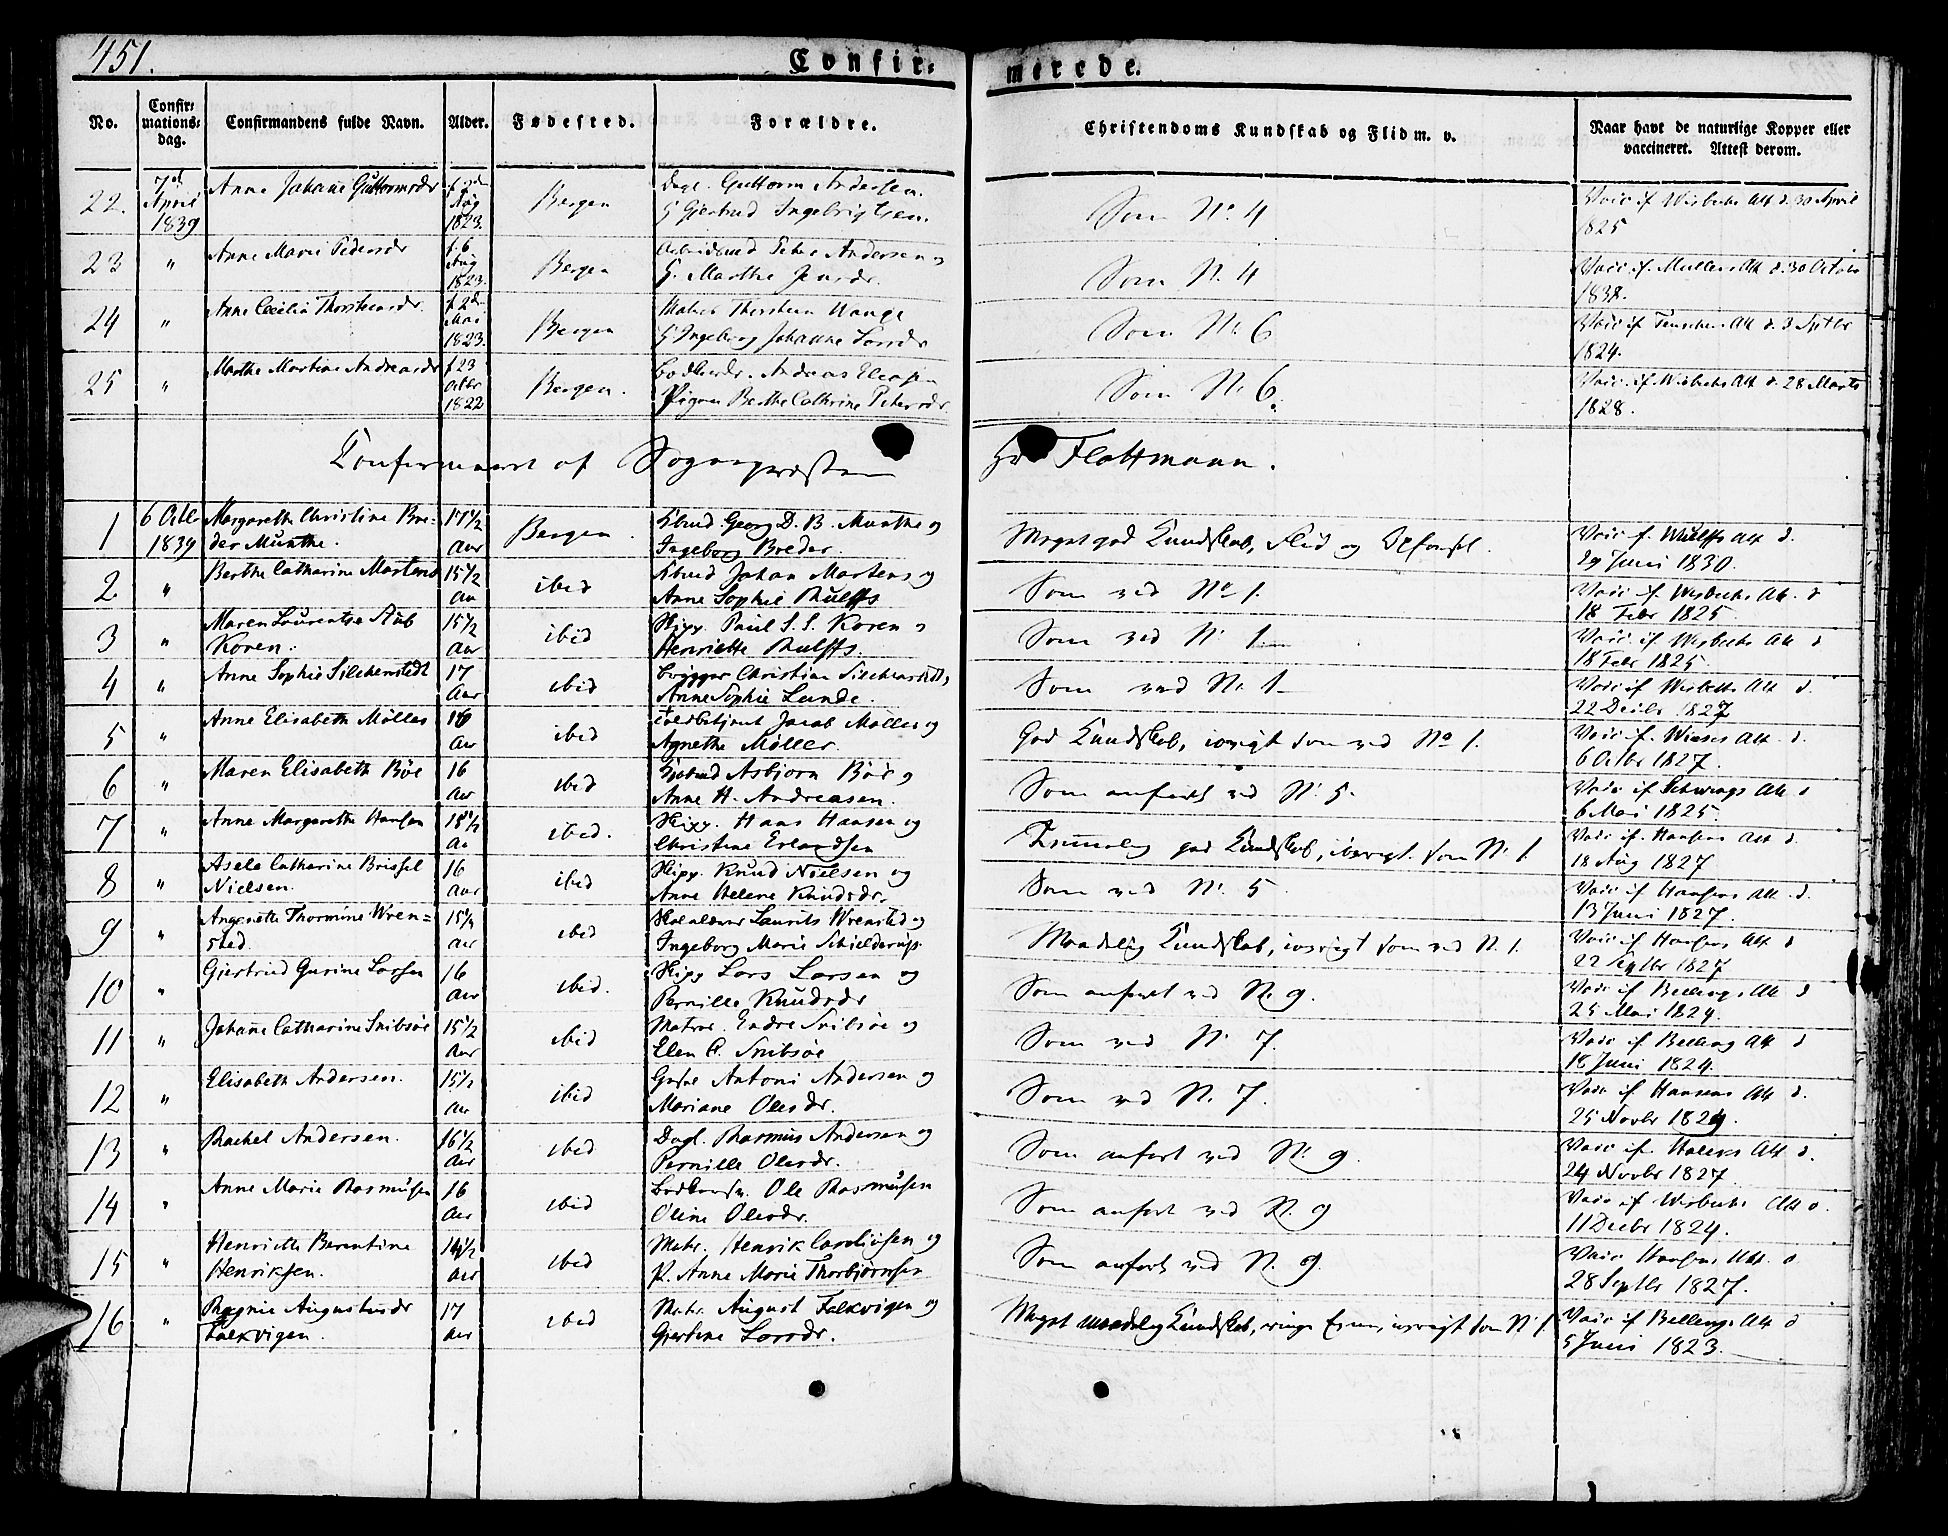 451.
Confir-
merede.
No.
Confir-
mations-
dag.
Confirmandens fulde Navn.
Alder.
Fødested.
Forældre.
Christendoms Kundskab og Flid m. v.
Naar havt de naturlige Kopper eller
vaccineret. Attest derom.
22. 7de April 1839 Anne Johanne Guttormsdr f. 2den Aug 1823. Bergen Dagl. Guttorm Andersen. G Gjertrud Ingebrigtsen. Som No. 4 Vacc if Wisbechs Att d. 30 April 1825
23 " Anne Marie Pedersdr f. 6 Aug 1823. Bergen Peder Andersen G. Marthe Jensdr. Som N. 4 Vacc. if. Mullers Att d. 30 Octobr
24 " Anne Cecilia Thorsteensdr. f 2d Mai 1823. Bergen Thorstein Wange G Ingeborg Johanne Larsdr Som N. 6 Vacc if Att d. 3 Septbr 1824.
25 " Marthe Martine Andreasdr f 23 Octbr 1822 Bergen. Andreas Elersen Pigen Berthe Cathrine Petersdr. Som N. 6. Vacc. if. Wisbechs Att d. 28 Marts 1828.
Confirmeret af Sognepræsten
Hr Flottmann.
1 6 Octbr 1839 Margarethe Christine Breder Munthe. 17 1/2 Aar Bergen. Kbmd Georg D. B. Munthe og Ingeborg Breder. Meget god Kundskab, Flid og Opførsel. Vacc if. Wulffs Att d. 29 Juni 1830.
2 " Berthe Catharine Martens 15 1/2 Aar ibid Kbmd Johan Martens og Anne Sophie Rulffs Som ved No 1. Vacc if. Wisbechs Att. d 18 Febr 1825.
3 " Maren Laurentze Aub Koren. 15 1/2 Aar ibid Skipp. Paul S. S. Koren og Henriette Rulffs. Som ved N. 1. Vacc if. Wisbechs Att d 18 Febr 1825.
4 " Anne Sophie Silchenstedt 17 Aar ibid Brygger Christian Silchenstedt, Anne Sophie Lunde. Som ved N. 1 Vacc if Wisbechs Att d. 22 Decbr 1827
5 " Anne Elisabeth Møller 16 Aar ibid Toldbetjent Jacob Møller og Agnethe Møller. God Kundskab, iøvrigt som ved No 1. Vacc if. Wieses Att. d. 6 Octbr 1827.
6 " Maren Elisabeth Böe 16 Aar ibid Asbjørn Böe og Anne H. Andreasen. Som anført ved N. 5. Vacc if Schwings Att d 6 Mai 1825.
7 " Anne Margarethe Hansen 18 1/2 Aar ibid. Skipp. Hans Hansen og Christine Erlandsen Temmelig god Kundskab, iøvrigt som N. 1. Vacc if. Hansens Att d. 18 Aug 1827
8 " Asele Catharine Briesel Nielsen. 16 Aar ibid Skipp. Knud Nielsen og Anne Helene Knudsdr. Som ved N. 5 Vacc if Hansens Att. d. 13 Juni 1827.
9 " Angenethe Thormine Wrensted. 15 1/2 Aar ibid Skolelærer Laurits Wrensted og Ingeborg Marie Schielderup. Maadelig Kundskab, iøvrigt som ved N. 1. Vacc if. Hansens Att d 22 Septbr 1827
10 " Gjertrud Gurine Larsen 16 Aar ibid. Skipp Lars Larsen og Pernille Knudsdr Som anført ved N. 9. Vacc if Bellings Att d 25 Mai 1824.
11 " Johanne Catharine Snibsøe 15 1/2 Aar ibid Matros. Endre Snibsøe og Elen C. Snibsøe Som ved N. 7. Vacc if Belling Att d 18 Juni 1824.
12 " Elisabeth Andersen. 15 1/2 Aar ibid Antoni Andersen og Mariane Olesdr. Som ved N. 7. Vacc if Hansens Att d. 25 Novbr 1829.
13 " Rachel Andersen. 16 1/2 Aar ibid Dagl. Rasmus Andersen og Pernille Olesdr. Som anført ved N. 9. Vacc if. Att d. 24 Novbr 1827.
14 " Anne Marie Rasmusen 16 Aar ibid Ole Rasmusen Oline Olesdr. Som anført ved N. 9 Vacc if Wisbechs Att d. 11 Decbr 1824.
15 " Henriette Berentine Henriksen. 14 1/2 Aar ibid Matr. Henrik og P. Anne Marie Thorbjørnsen Som anført ved N. 9. Vacc Hansens Att. d 28 Septbr 1827.
16 " Ragnie Augustusdr Falkvigen. 17 Aar ibid Matr. August Falkvigen og Gjertine Larsdr. Meget maadelig Kundskab, ringe Evner, iøvrigt som N. 1. Vacc if Bellings Att d 5 Juni 1823.